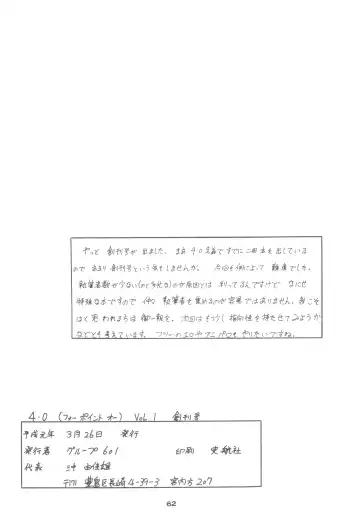 やっと 創刊号が出ました。まあ 4・0名義ですでに二冊本を出している
ので あまり創刊号という気もしませんが。 今回も例によって 難産でした。
執筆者数が少ない(のと多忙な)のが原因とは 判ってるんですけど なにせ
特殊な本ですので 仲々 執筆者を集めるのが容易ではありません。我こそ
はと思われる方は 御一報を。次回はもう少し指向性を持たせてみようか
などとも考えています。フリーのエロやアニパロも やりたいですね。
4・0 (フォーポイントオー) Vol.1 創刊号
平成元年 3月26日 発行
発行者 グループ601 印刷 栄航社
代表 三中
〒171 豊島区長崎4-39-3 宮内方207
62